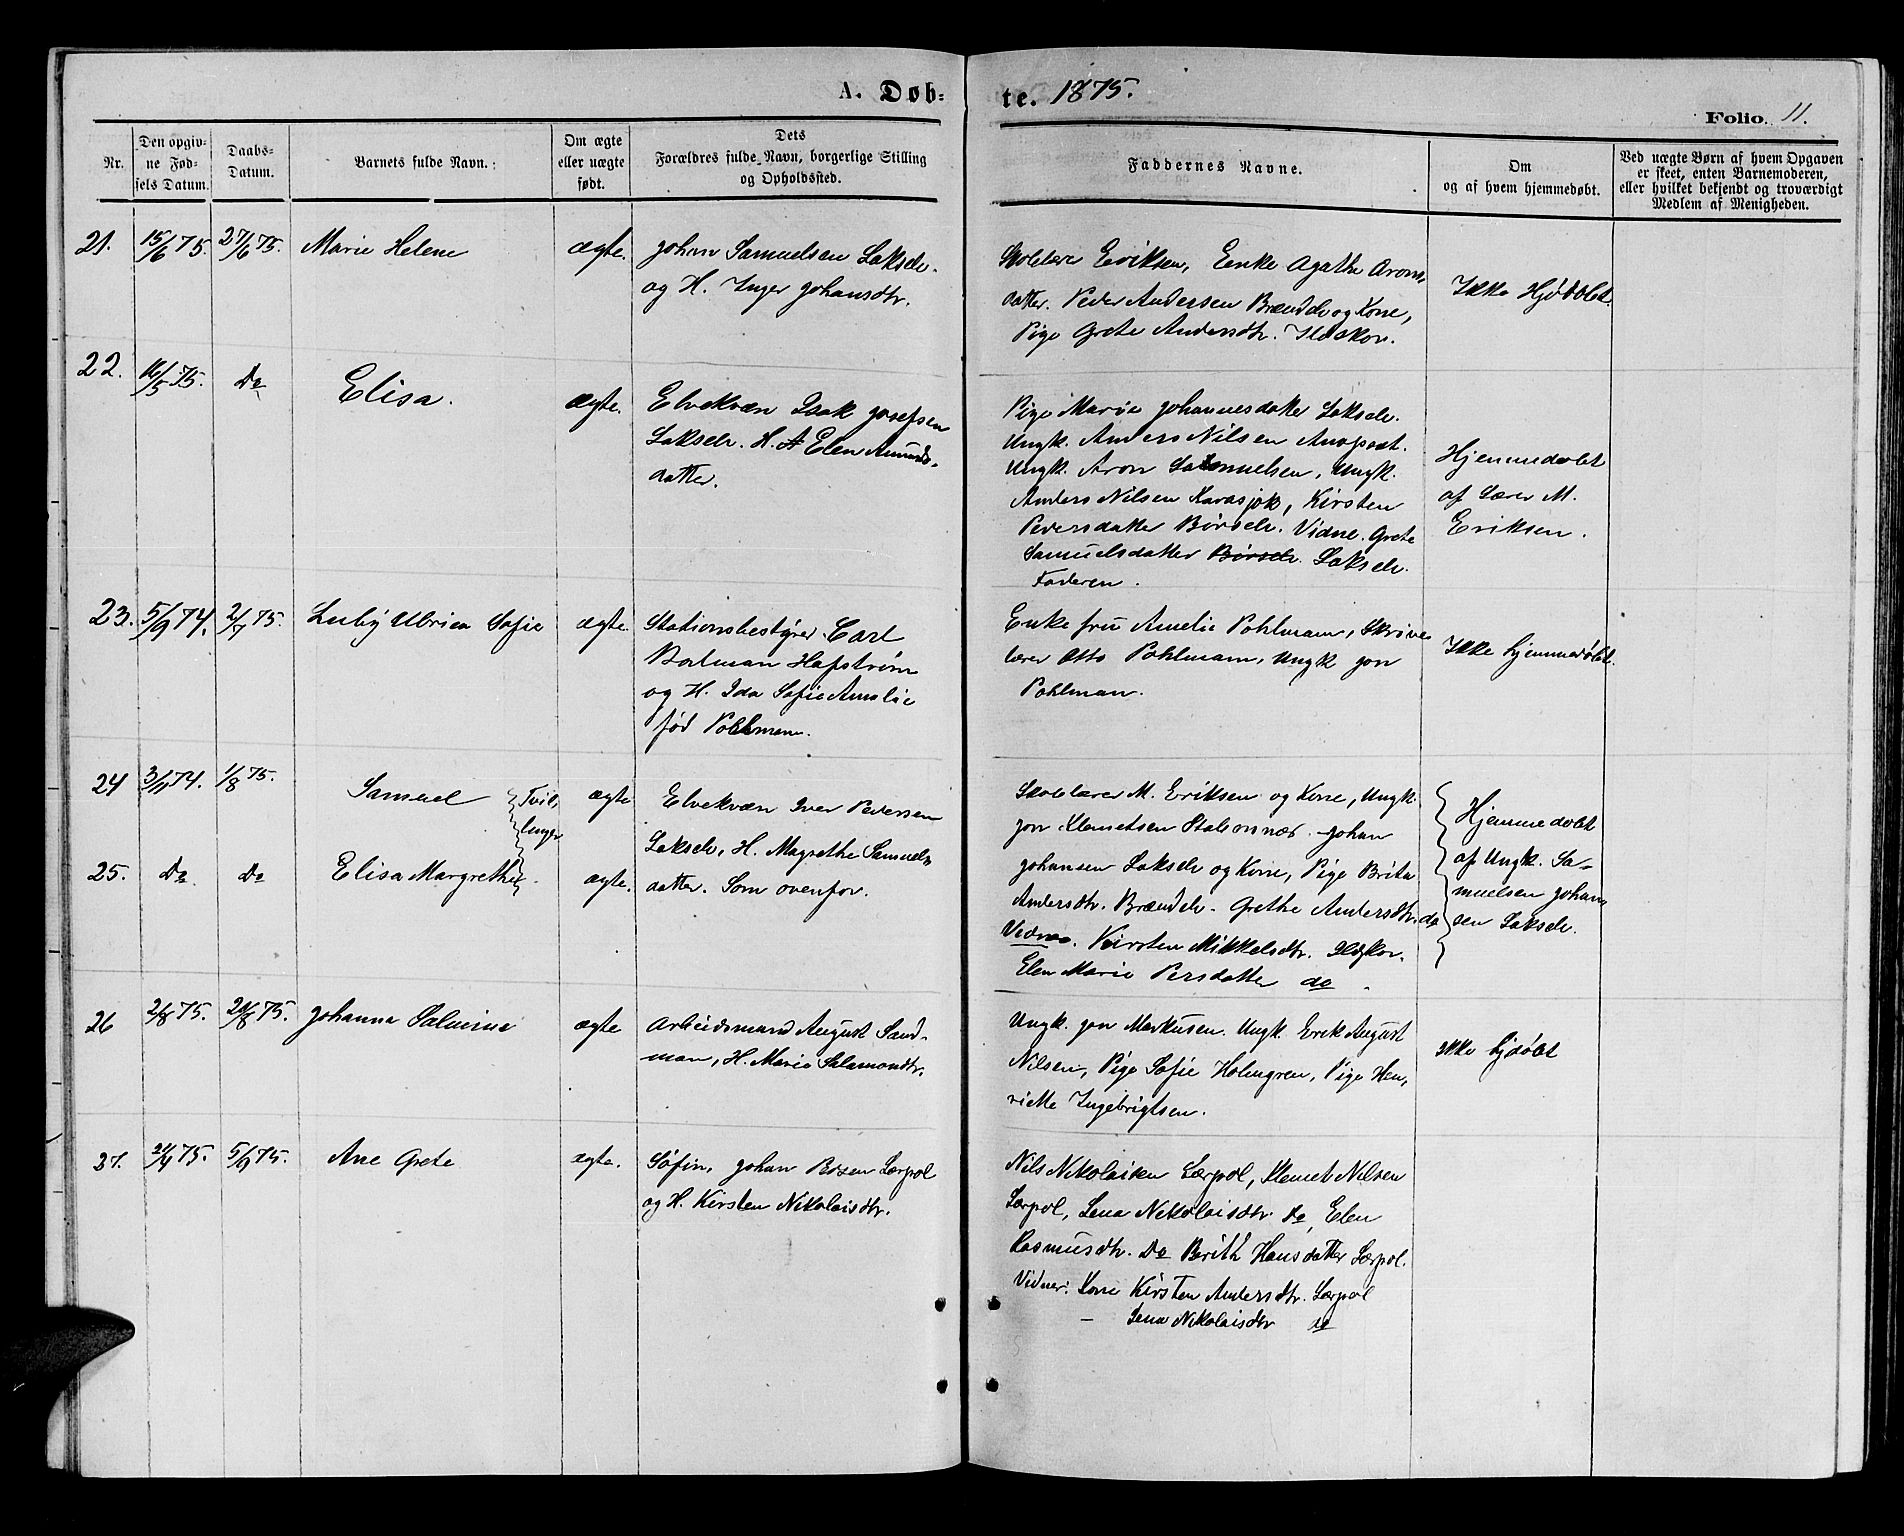 A. Døb-
te. 1875.
Folio. 11.
Nr.
Den opgiv-
ne Fød-
sels Datum.
Daabs-
Datum.
Barnets fulde Navn.
Om ægte
eller uægte
født.
Dets
Forældres fulde Navn, borgerlige Stilling
og Opholdssted.
Faddernes Navne.
Om
og af hvem hjemmedøbt.
Ved uægte Børn af hvem Opgaven
er skeet, enten Barnemoderen,
eller hvilket bekjendt og troværdigt
Medlem af Menigheden.
21. 15/6 75. 27/6 75. Marie Helene ægte. Johan Samuelsen Lakselv.
og H. Inger Johansdtr.
Skolelærer Eriksen, Enke Agathe Arons
datter. Peder Andersen Brændelv og Kone,
Pige Grete Andersdtr. Ildskon.
Ikke Hjdøbt.
22. 16/5 75. Do Elisa. ægte. Elvekvæn Isak Josefsen
Lakselv. H. Elen Amunds-
datter.
Pige Marie Johannesdatter Lakselv.
Ungk. Anders Nilsen
Ungk. Aron Samuelsen, Ungk.
Anders Nilsen Karasjok, Kirsten
Pedersdatter Børselv. Vidne. Grete
Samuelsdatter Børselv. Lakselv.
Faderen.
Hjemmedøbt
af Lærer M.
Eriksen.
23. 5/9 74. 2/7 75. Sofie ægte. Stationsbestyrer Carl
Bodman Hafstrøm
og H. Ida Sofie Amalie
fød Pohlman.
Enke fru Amelie Pohlmann, Skrive
lærer Otto Pohlmann, Ungk Jon
Pohlman.
Ikke hjemmedøbt.
24 3/11 74. 1/8 75. Samuel Tvil- ægte Elvekvæn Iver Pedersen
linger
Lakselv, H. Magrethe Samuels
25. Do. Do Elisa Margrethe. ægte. datter. Som ovenfor.
Skolelærer M. Eriksen og Kone, Ungk.
Jon Klemetsen Stabursnæs. Johan
Johansen Lakselv og Kone, Pige Brita
Andersdtr. Brændelv. Grethe Andersdtr. do
Vidner. Kirsten Mikkelsdtr. Ildskon.
Elen Marie Persdatter do.
Hjemmedøbt
af Ungk. Sa-
muelsen Johan
sen Lakselv.
26 2/8 75. 29/8 75. Johanna ægte Arbeidsmand August Sand-
man, H. Marie Salamondtr.
Ungk. Jon Markusen. Ungk. Erik August
Nilsen, Pige Sofie Holmgren, Pige Hen-
riette Ingebrigtsen.
Ikke hjdøbt
27. 21/4 75. 5/9 75. Ane Grete ægte. Søfin, Johan Lærpol
og H. Kirsten Nikolaisdtr.
Nils Nikolaisen Lærpol, Klemet Nilsen
Lærpol, Lena Nikolaisdtr Do, Elen
Rasmusdtr. Do Berith Hansdatter Lærpol.
Vidner: Kone Kirsten Andersdtr. Lærpol
- Lena Nikolaisdtr do